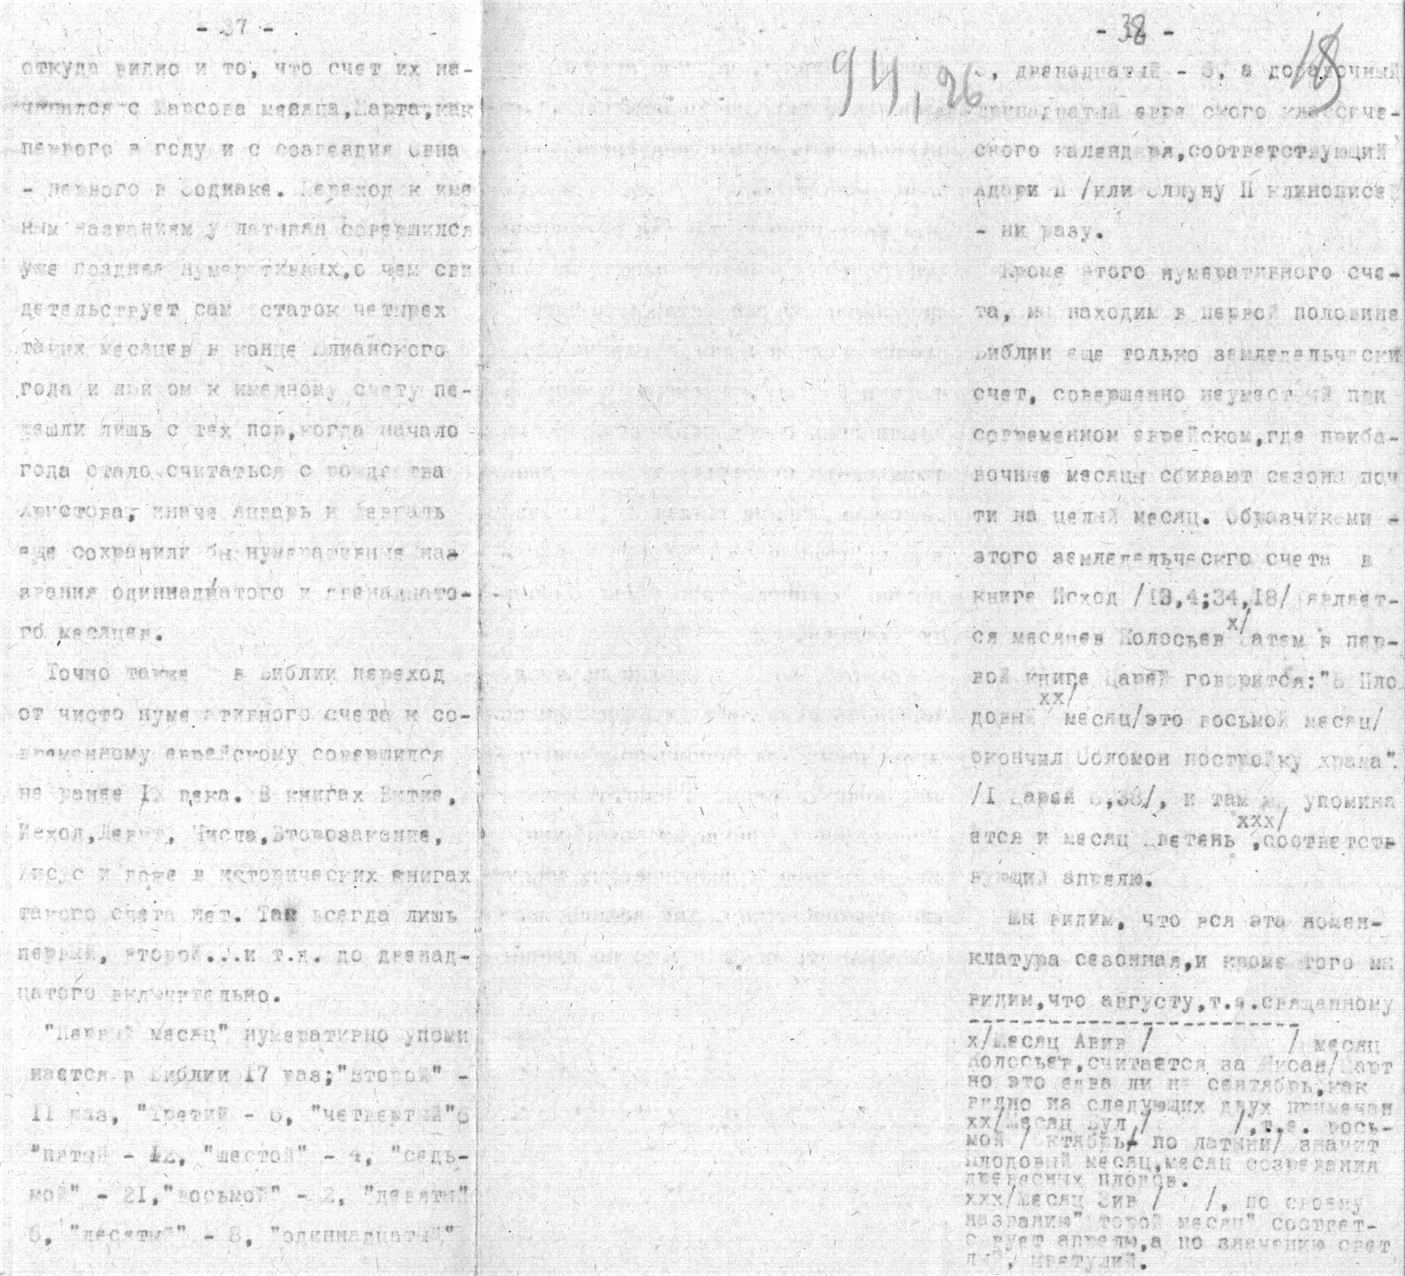 - 37 -
откуда видно и то, что счет их на-
чинался с Марсова месяца,Марта,как
первого в году и с созвездия Овна
- первого в Зодиаке. Переход к име
ным названиям у латинян совершился
уже позднее нумеративных,о чем сви
детельствует сам статок четырех
таких месяцев в конце Юлианского
года и к именному счету пе-
решли лишь с тех пор,когда начало
года стало считаться с рождества
Христова, иначе Январь и Февраль
еще сохранили бы нумеративные наз
звания одиннадцатого и двенадцато-
го месяцев.
Точно также в Библии переход
от чисто нумеративного счета к со-
временному еврейскому совершился
не ранее IX века. В книгах Бытие,
Исход,Левит, Числа,Второзакение,
Иисус и даже в исторических книгах
такого счета нет. Там всегда лишь
первый, второй...и т.д. до двенад-
цатого включительно.
"Первый месяц" нумеративно упоми
нается в Библии 17 раз;"второй" -
II раз, "Третий - 6, "четвертый"6
"пятый - 12, "шестой" - 4, "седь-
мой" - 21,"восьмой" - 2, "девятый"
6, "десятый" - 8, "одиннадцатый"
- 38 -
94, 26
18
3, двенадцатый - 6, а добавочный
тринадцатый евре ского классиче-
ского календаря,соответствующий
Адари II /или Эллулу II клинописей
- ни разу.
Кроме этого нумеративного сче-
та, мы находим в первой половине
Библии еще только земледельческий
счет, совершенно неуместный при
современном еврейском,где приба-
вочные месяцы сбивают сезоны поч
ти на целый месяц. Образчиками -
этого земледельческго счета в
книге Исход /13,4;34,18/ являет-
ся месяцев Колосьев х/ Затем в пер-
вой книге Царей говорится:"В Пло
довый хх/ месяц/это восьмой месяц/
окончил Соломон постройку храма".
/I Царей 6,38/, и там же упомина
ется и месяц Цветень ххх/,соответств
вующий апрелю.
Мы видим, что вся эта номен-
клатура сезонная,и кроме того мы
видим,что августу,т.е.священному
х/Месяц Авив / / месяц
Колосьев,считается за Нисан/Март
но это едва ли не сентябрь,как
видно из следующих двух примечан
хх/Месяц Бул / /,т.е. вось-
мой /Октябрь, по латыни/ значит
плодовый месяц,месяц созревания
древесных плодов.
ххх/Месяц Зив / /, по своему
названию" второй месяц" соответ-
ствует апрелю,а по значению свет
лый, цветущий.